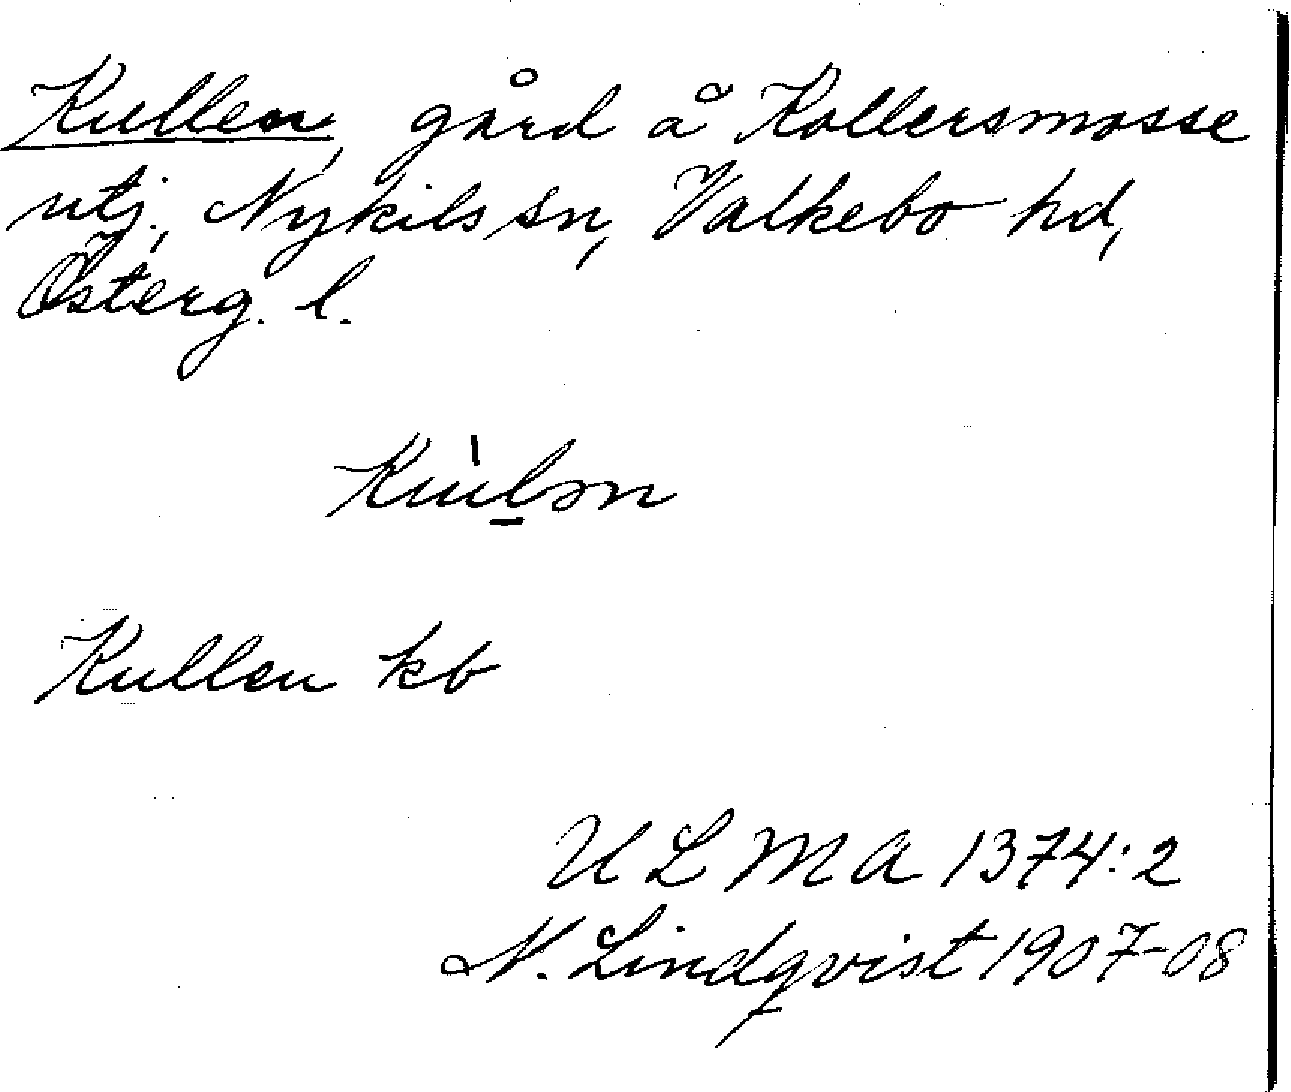 Kullen, gård å Kollersmosse
utj., Nykils sn, Valkebo hd,
Österg. l.
Kùl̲ən
Kullen kb
ULMA 1374:2
N. Lindqvist 1907-08